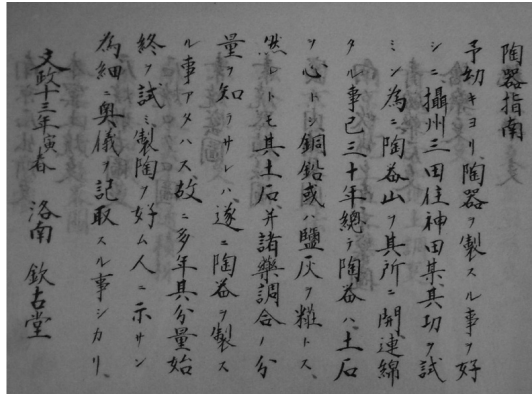 陶器指南
予幼キヨリ陶器ヲ製スル事ヲ好
シニ攝州三田住神田某其功ヲ試
ミン為ニ陶益山ヲ其所ニ開連綿
タル事已三十年總テ陶益ハ土石
ヲ心トシ銅鉛或ハ鹽灰ヲ雜トス、
然レトモ其土石并諸藥調合ノ分
量ヲ知ラサレハ遂ニ陶益ヲ製ス
ル事アタハス故ニ多年其分量始
終ヲ試ミ製陶ヲ好ム人ニ示サン
為細ニ奥儀ヲ記取スル事シカリ、
文政十三年寅春 洛南 欽古堂